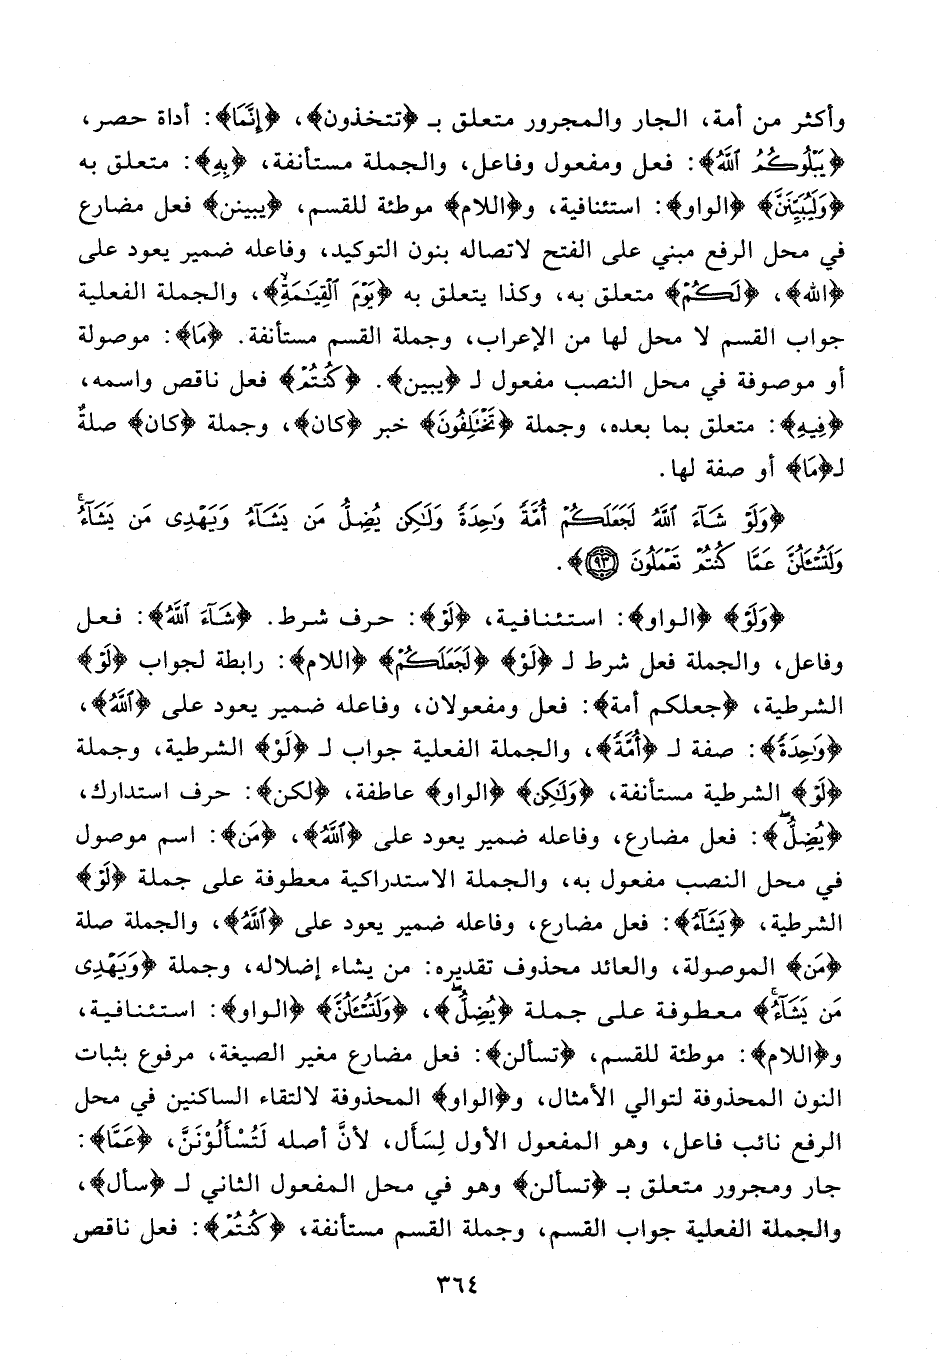 وأكثر من أمة، الجار والمجرور متعلق بـ ﴿تتخذون﴾، ﴿إِنَّمَا﴾: أداة حصر،
﴿يَبْلُوكُمُ ٱللَّهُ﴾: فعل ومفعول وفاعل، والجملة مستأنفة، ﴿بِهِ﴾: متعلق به
﴿وَلَيُبَيِّنَنَّ﴾ ﴿الواو﴾: استئنافية، و﴿اللام﴾ موطئة للقسم، ﴿يبينن﴾ فعل مضارع
في محل الرفع مبني على الفتح لاتصاله بنون التوكيد، وفاعله ضمير يعود على
﴿الله﴾، ﴿لَكُمْ﴾ متعلق به، وكذا يتعلق به ﴿يَوْمَ ٱلْقِيَـٰمَةِۙ﴾، والجملة الفعلية
جواب القسم لا محل لها من الإعراب، وجملة القسم مستأنفة. ﴿مَا﴾: موصولة
أو موصوفة في محل النصب مفعول لـ ﴿يبين﴾. ﴿كُنتُمْ﴾ فعل ناقص واسمه،
﴿فِيهِ﴾: متعلق بما بعده، وجملة ﴿تَخْتَلِفُونَ﴾ خبر ﴿كان﴾، وجملة ﴿كان﴾ صلةٌ
لـ﴿مَا﴾ أو صفة لها.
﴿وَلَوْ شَآءَ ٱللَّهُ لَجَعَلَكُمْ أُمَّةً وَٰحِدَةً وَلَـٰكِن يُضِلُّ مَن يَشَآءُ وَيَهْدِى مَن يَشَآءُۚ
وَلَتُسْـَٔلُنَّ عَمَّا كُنتُمْ تَعْمَلُونَ ٩٣﴾.
﴿وَلَوْ﴾ ﴿الواو﴾: استئنافية، ﴿لَوْ﴾: حرف شرط. ﴿شَآءَ ٱللَّهُ﴾: فعل
وفاعل، والجملة فعل شرط لـ ﴿لَوْ﴾ ﴿لَجَعَلَكُمْ﴾ ﴿اللام﴾: رابطة لجواب ﴿لَوْ﴾
الشرطية، ﴿جعلكم أمة﴾: فعل ومفعولان، وفاعله ضمير يعود على ﴿ٱللَّهُ﴾،
﴿وَٰحِدَةً﴾: صفة لـ ﴿أُمَّةً﴾، والجملة الفعلية جواب لـ ﴿لَوْ﴾ الشرطية، وجملة
﴿لَوْ﴾ الشرطية مستأنفة، ﴿وَلَـٰكِن﴾ ﴿الواو﴾ عاطفة، ﴿لكن﴾: حرف استدراك،
﴿يُضِلُّ﴾: فعل مضارع، وفاعله ضمير يعود على ﴿ٱللَّهُ﴾، ﴿مَن﴾: اسم موصول
في محل النصب مفعول به، والجملة الاستدراكية معطوفة على جملة ﴿لَوْ﴾
الشرطية، ﴿يَشَآءُ﴾: فعل مضارع، وفاعله ضمير يعود على ﴿ٱللَّهُ﴾، والجملة صلة
﴿مَن﴾ الموصولة، والعائد محذوف تقديره: من يشاء إضلاله، وجملة ﴿وَيَهْدِى
مَن يَشَآءُۚ﴾ معطوفة على جملة ﴿يُضِلُّ﴾، ﴿وَلَتُسْـَٔلُنَّ﴾ ﴿الواو﴾: استئنافية،
و﴿اللام﴾: موطئة للقسم، ﴿تسألن﴾: فعل مضارع مغير الصيغة، مرفوع بثبات
النون المحذوفة لتوالي الأمثال، و﴿الواو﴾ المحذوفة لالتقاء الساكنين في محل
الرفع نائب فاعل، وهو المفعول الأول لِسَأَل، لأنَّ أصله لَتُسْأَلُوْنَنَّ، ﴿عَمَّا﴾:
جار ومجرور متعلق بـ ﴿تسألن﴾ وهو في محل المفعول الثاني لـ ﴿سأل﴾،
والجملة الفعلية جواب القسم، وجملة القسم مستأنفة، ﴿كُنتُمْ﴾: فعل ناقص
٣٦٤